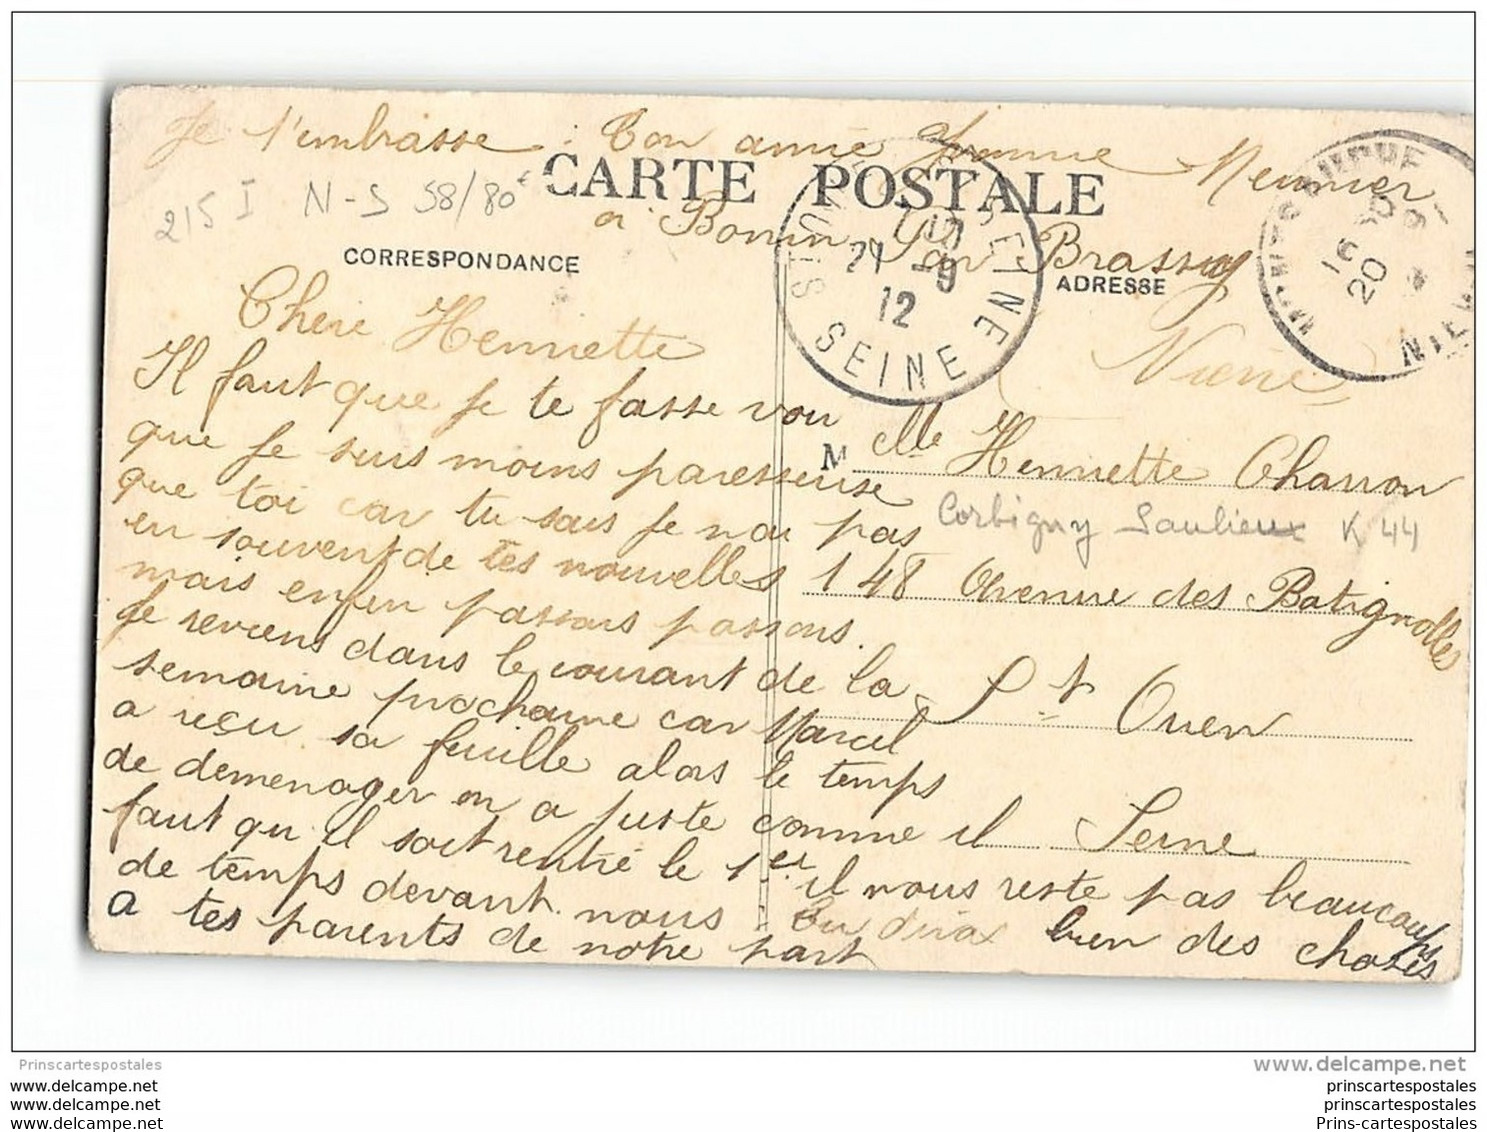 Je t'embrasse. Ton amie Yvonne Meunier
CARTE POSTALE
215 I N-S 58/80€
a Bonin par Brassy
CORRESPONDANCE
ADRESSE
Nievre
ST OUEN S SEINE
17
21 -9
12
SEINE
20
NIEVRE
Chere Henriette
Il faut que je te fasse voir
que je suis moins paresseuse
que toi car tu sais je n'ai pas
eu souvent de tes nouvelles
mais enfin passons passons.
Je reviens dans le courant de la
semaine prochaine car Marcel
a reçu sa feuille alors le temps
de demenager on a juste comme il
faut qu'il soit rentré le 1er il nous reste pas beaucoup
de temps devant nous Tu diras bien des choses
a tes parents de notre part
M elle Henriette Charron
Corbigny Saulieu K 44
148 Avenue des Batignolles
St Ouen
Seine
Prinscartespostales
www.delcampe.net
www.delcampe.net
www.delcampe.net
www.delcampe.net
prinscartespostales
prinscartespostales
Prins-cartespostales